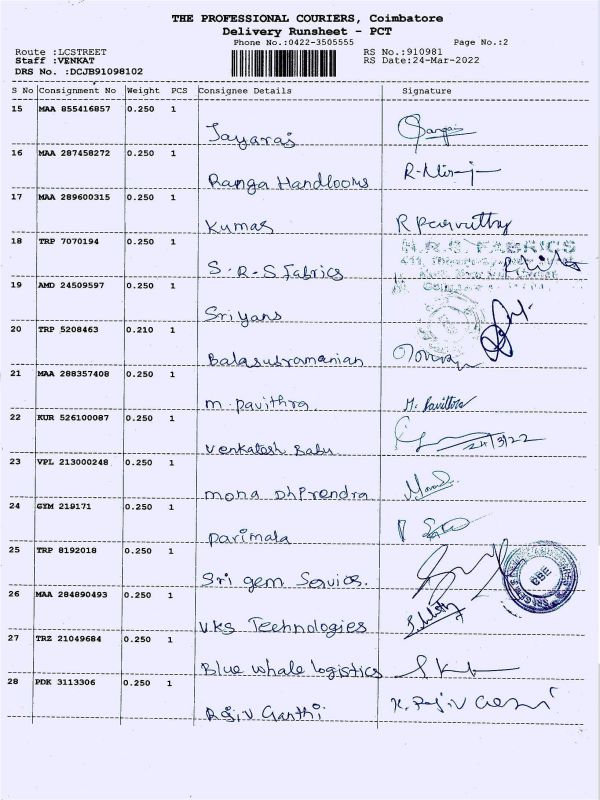 THE PROFESSIONAL COURIERS, Coimbatore
Delivery Runsheet - PCT
Phone No.:0422-3505555 Page No.:2
Route :LCSTREET RS No.:910981
Staff :VENKAT RS Date:24-Mar-2022
DRS No. :DCJB91098102
S No Consignment No Weight PCS Consignee Details Signature
15 MAA 855416857 0.250 1
Jayaraj
16 MAA 287458272 0.250 1
Ranga Handlooms
17 MAA 289600315 0.250 1
Kumar R Parvuthy
18 TRP 7070194 0.250 1
S.R.S Fabrics
FABRICS
19 AMD 24509597 0.250 1
Sriyans
20 TRP 5208463 0.210 1
Balasubramanian
21 MAA 288357408 0.250 1
M. Pavithra M. Pavithra
22 KUR 526100087 0.250 1
Venkatesh Babu 24/3/22
23 VPL 213000248 0.250 1
Mona Dhirendra
24 GYM 219171 0.250 1
Parimala
25 TRP 8192018 0.250 1
Sri gem Service.
26 MAA 284890493 0.250 1
VKS Technologies
27 TRZ 21049684 0.250 1
Blue whale logistics
28 PDK 3113306 0.250 1
Rajiv Ganthi K. Rajiv